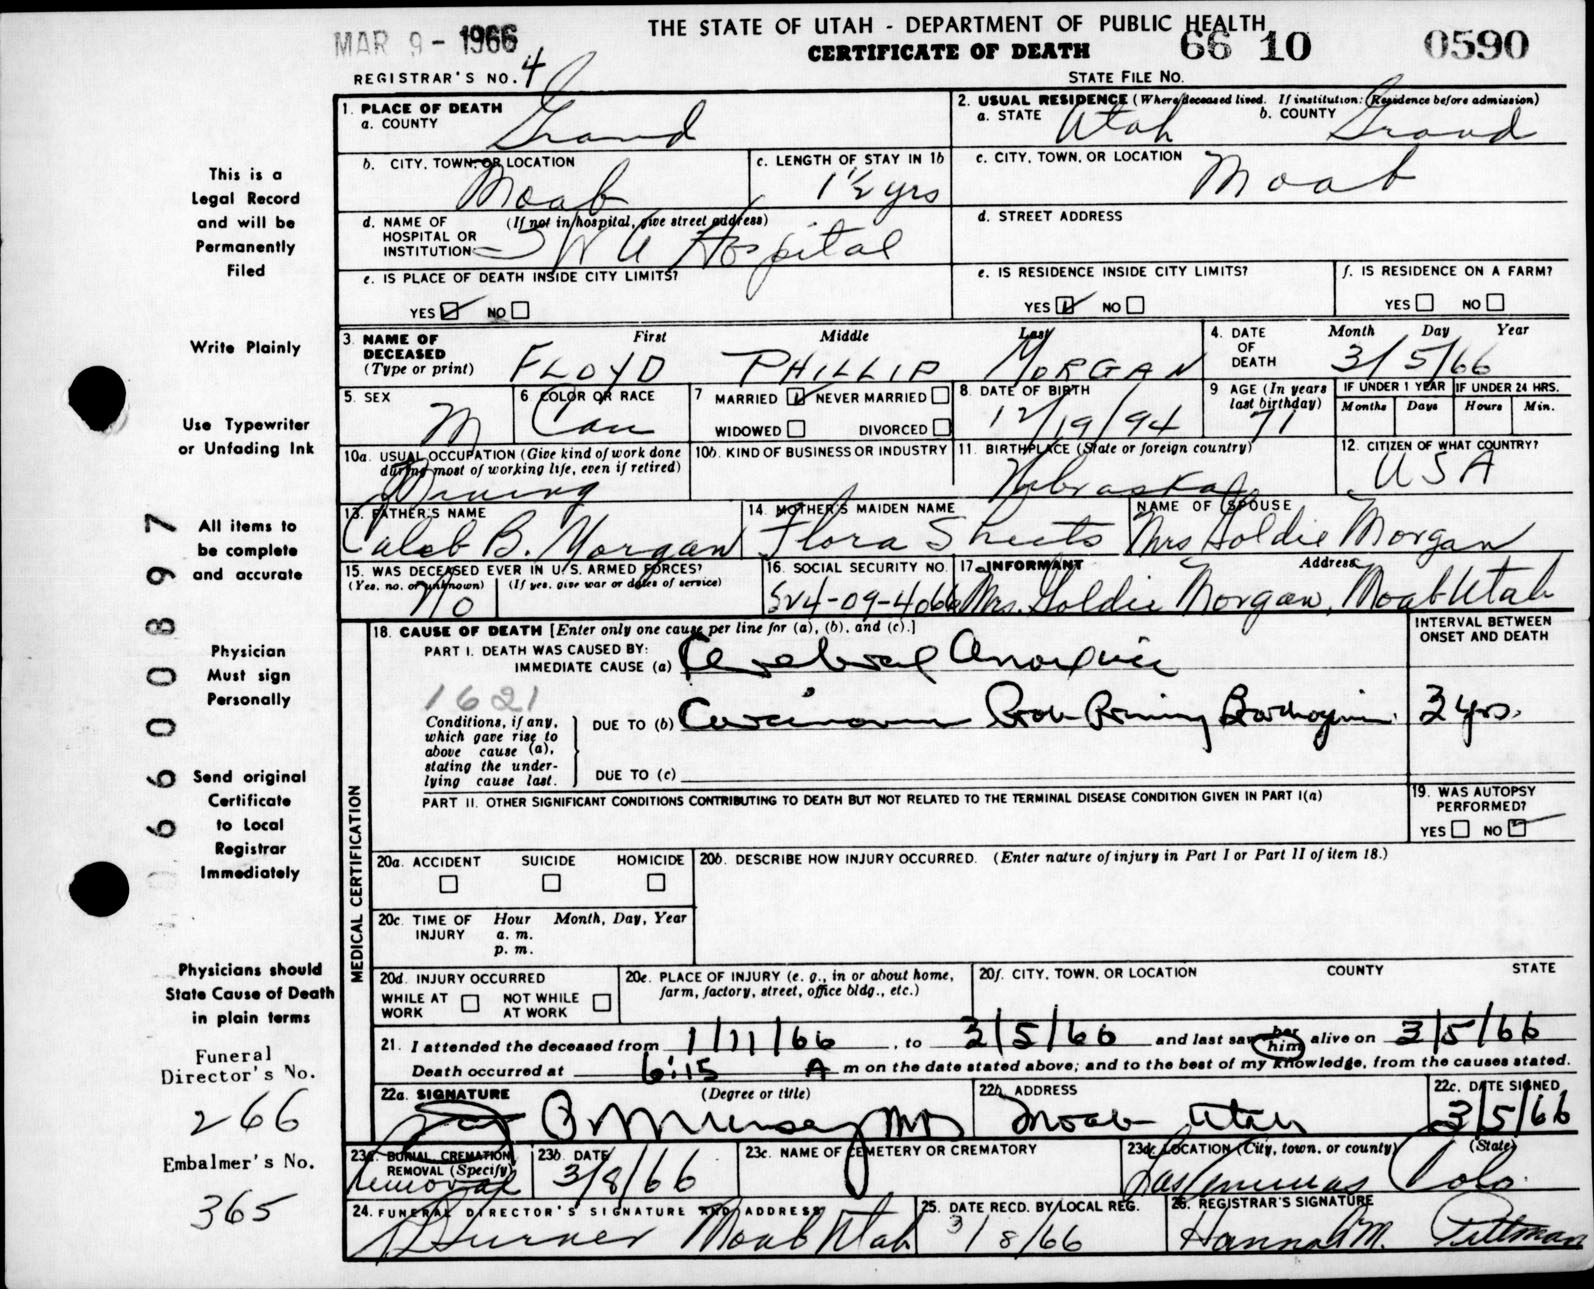 MAR 9 - 1966
THE STATE OF UTAH - DEPARTMENT OF PUBLIC HEALTH
CERTIFICATE OF DEATH
66 10 0590
REGISTRAR'S NO. 4
STATE FILE NO.
1. PLACE OF DEATH
a. COUNTY Grand
2. USUAL RESIDENCE (Where deceased lived. If institution: Residence before admission)
a. STATE Utah b. COUNTY Grand
b. CITY, TOWN, OR LOCATION Moab
c. LENGTH OF STAY IN 1b 1½ yrs
c. CITY, TOWN, OR LOCATION Moab
d. NAME OF HOSPITAL OR INSTITUTION (If not in hospital, give street address) Hospital
d. STREET ADDRESS
e. IS PLACE OF DEATH INSIDE CITY LIMITS?
YES NO
e. IS RESIDENCE INSIDE CITY LIMITS?
YES NO
f. IS RESIDENCE ON A FARM?
YES NO
3. NAME OF DECEASED (Type or print)
First Middle Last
FLOYD PHILLIP MORGAN
4. DATE OF DEATH Month Day Year
3/5/66
5. SEX M
6 COLOR OR RACE Cau
7 MARRIED NEVER MARRIED
WIDOWED DIVORCED
8. DATE OF BIRTH 12/19/94
9 AGE (In years last birthday) 71
IF UNDER 1 YEAR Months Days
IF UNDER 24 HRS. Hours Min.
10a. USUAL OCCUPATION (Give kind of work done during most of working life, even if retired) Mining
10b. KIND OF BUSINESS OR INDUSTRY
11. BIRTHPLACE (State or foreign country) Nebraska
12. CITIZEN OF WHAT COUNTRY? USA
13. FATHER'S NAME Caleb B. Morgan
14. MOTHER'S MAIDEN NAME Flora Sheets
NAME OF SPOUSE Mrs Goldie Morgan
15. WAS DECEASED EVER IN U.S. ARMED FORCES?
(Yes, no, or unknown) (If yes, give war or dates of service)
No
16. SOCIAL SECURITY NO.
17. INFORMANT Address
Mrs. Goldie Morgan, Moab Utah
MEDICAL CERTIFICATION
18. CAUSE OF DEATH [Enter only one cause per line for (a), (b), and (c).]
INTERVAL BETWEEN ONSET AND DEATH
PART I. DEATH WAS CAUSED BY:
IMMEDIATE CAUSE (a) Cerebral Anoxia
1621
Conditions, if any, which gave rise to above cause (a), stating the underlying cause last.
DUE TO (b) Carcinoma Prob Primary Bronchogenic 3 yrs.
DUE TO (c)
PART II. OTHER SIGNIFICANT CONDITIONS CONTRIBUTING TO DEATH BUT NOT RELATED TO THE TERMINAL DISEASE CONDITION GIVEN IN PART I(a)
19. WAS AUTOPSY PERFORMED?
YES NO
20a. ACCIDENT SUICIDE HOMICIDE
20b. DESCRIBE HOW INJURY OCCURRED. (Enter nature of injury in Part I or Part II of item 18.)
20c. TIME OF INJURY Hour Month, Day, Year
a. m.
p. m.
20d INJURY OCCURRED
WHILE AT WORK NOT WHILE AT WORK
20e. PLACE OF INJURY (e. g., in or about home, farm, factory, street, office bldg., etc.)
20f. CITY, TOWN, OR LOCATION COUNTY STATE
21. I attended the deceased from 1/11/66, to 3/5/66 and last saw her him alive on 3/5/66
Death occurred at 6:15 A m on the date stated above; and to the best of my knowledge, from the causes stated.
22a. SIGNATURE (Degree or title)
MD
22b. ADDRESS Moab Utah
22c. DATE SIGNED 3/5/66
23a. BURIAL, CREMATION REMOVAL (Specify) Removal
23b. DATE 3/8/66
23c. NAME OF CEMETERY OR CREMATORY
23d. LOCATION (City, town, or county) (State)
Las Animas Colo.
24. FUNERAL DIRECTOR'S SIGNATURE AND ADDRESS
Turner Moab Utah
25. DATE RECD. BY LOCAL REG. 3/8/66
26. REGISTRAR'S SIGNATURE
Hannah M. Pittman
This is a
Legal Record
and will be
Permanently
Filed
Write Plainly
Use Typewriter
or Unfading Ink
All items to
be complete
and accurate
Physician
Must sign
Personally
Send original
Certificate
to Local
Registrar
Immediately
Physicians should
State Cause of Death
in plain terms
Funeral
Director's No.
266
Embalmer's No.
365
066008897